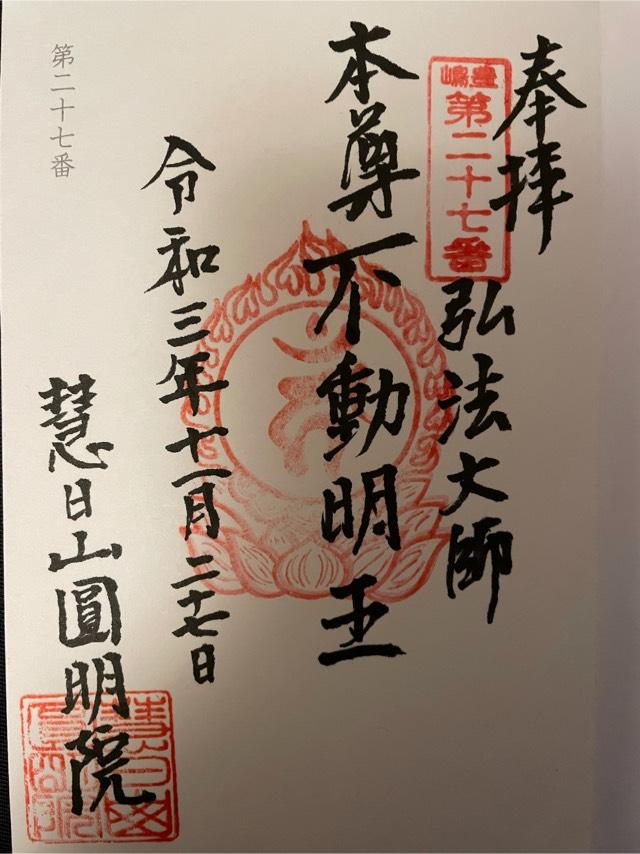 奉拝
豊嶋
第二十七番
弘法大師
本尊不動明王
令和三年十一月二十七日
慧日山圓明院
第二十七番